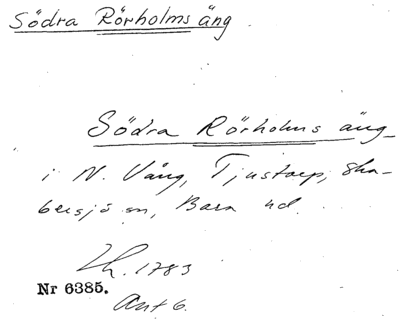 Södra Rörholms äng
Södra Rörholms äng
i N. Vång, Tjustorp, Ska-
bersjö sn, Bara hd.
Lh. 1783
Nr 6385.
Akt 6.